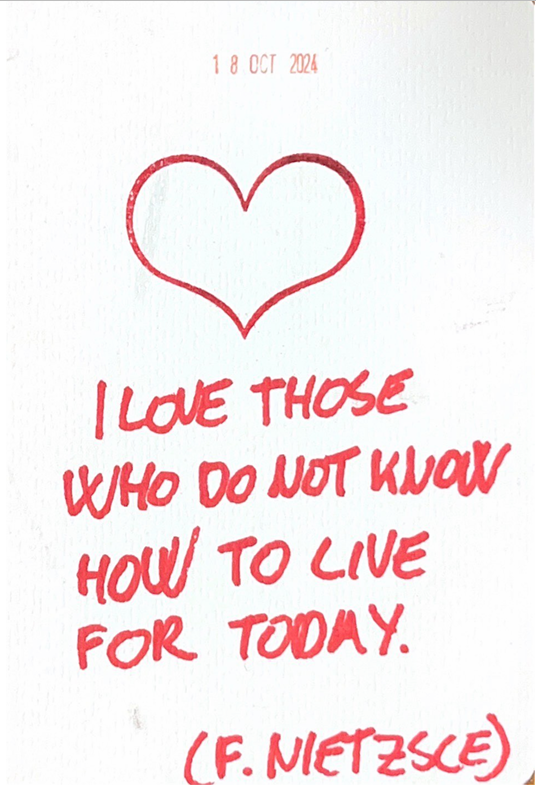 18 OCT 2024
I LOVE THOSE
WHO DO NOT KNOW
HOW TO LIVE
FOR TODAY.
(F. NIETZSCE)